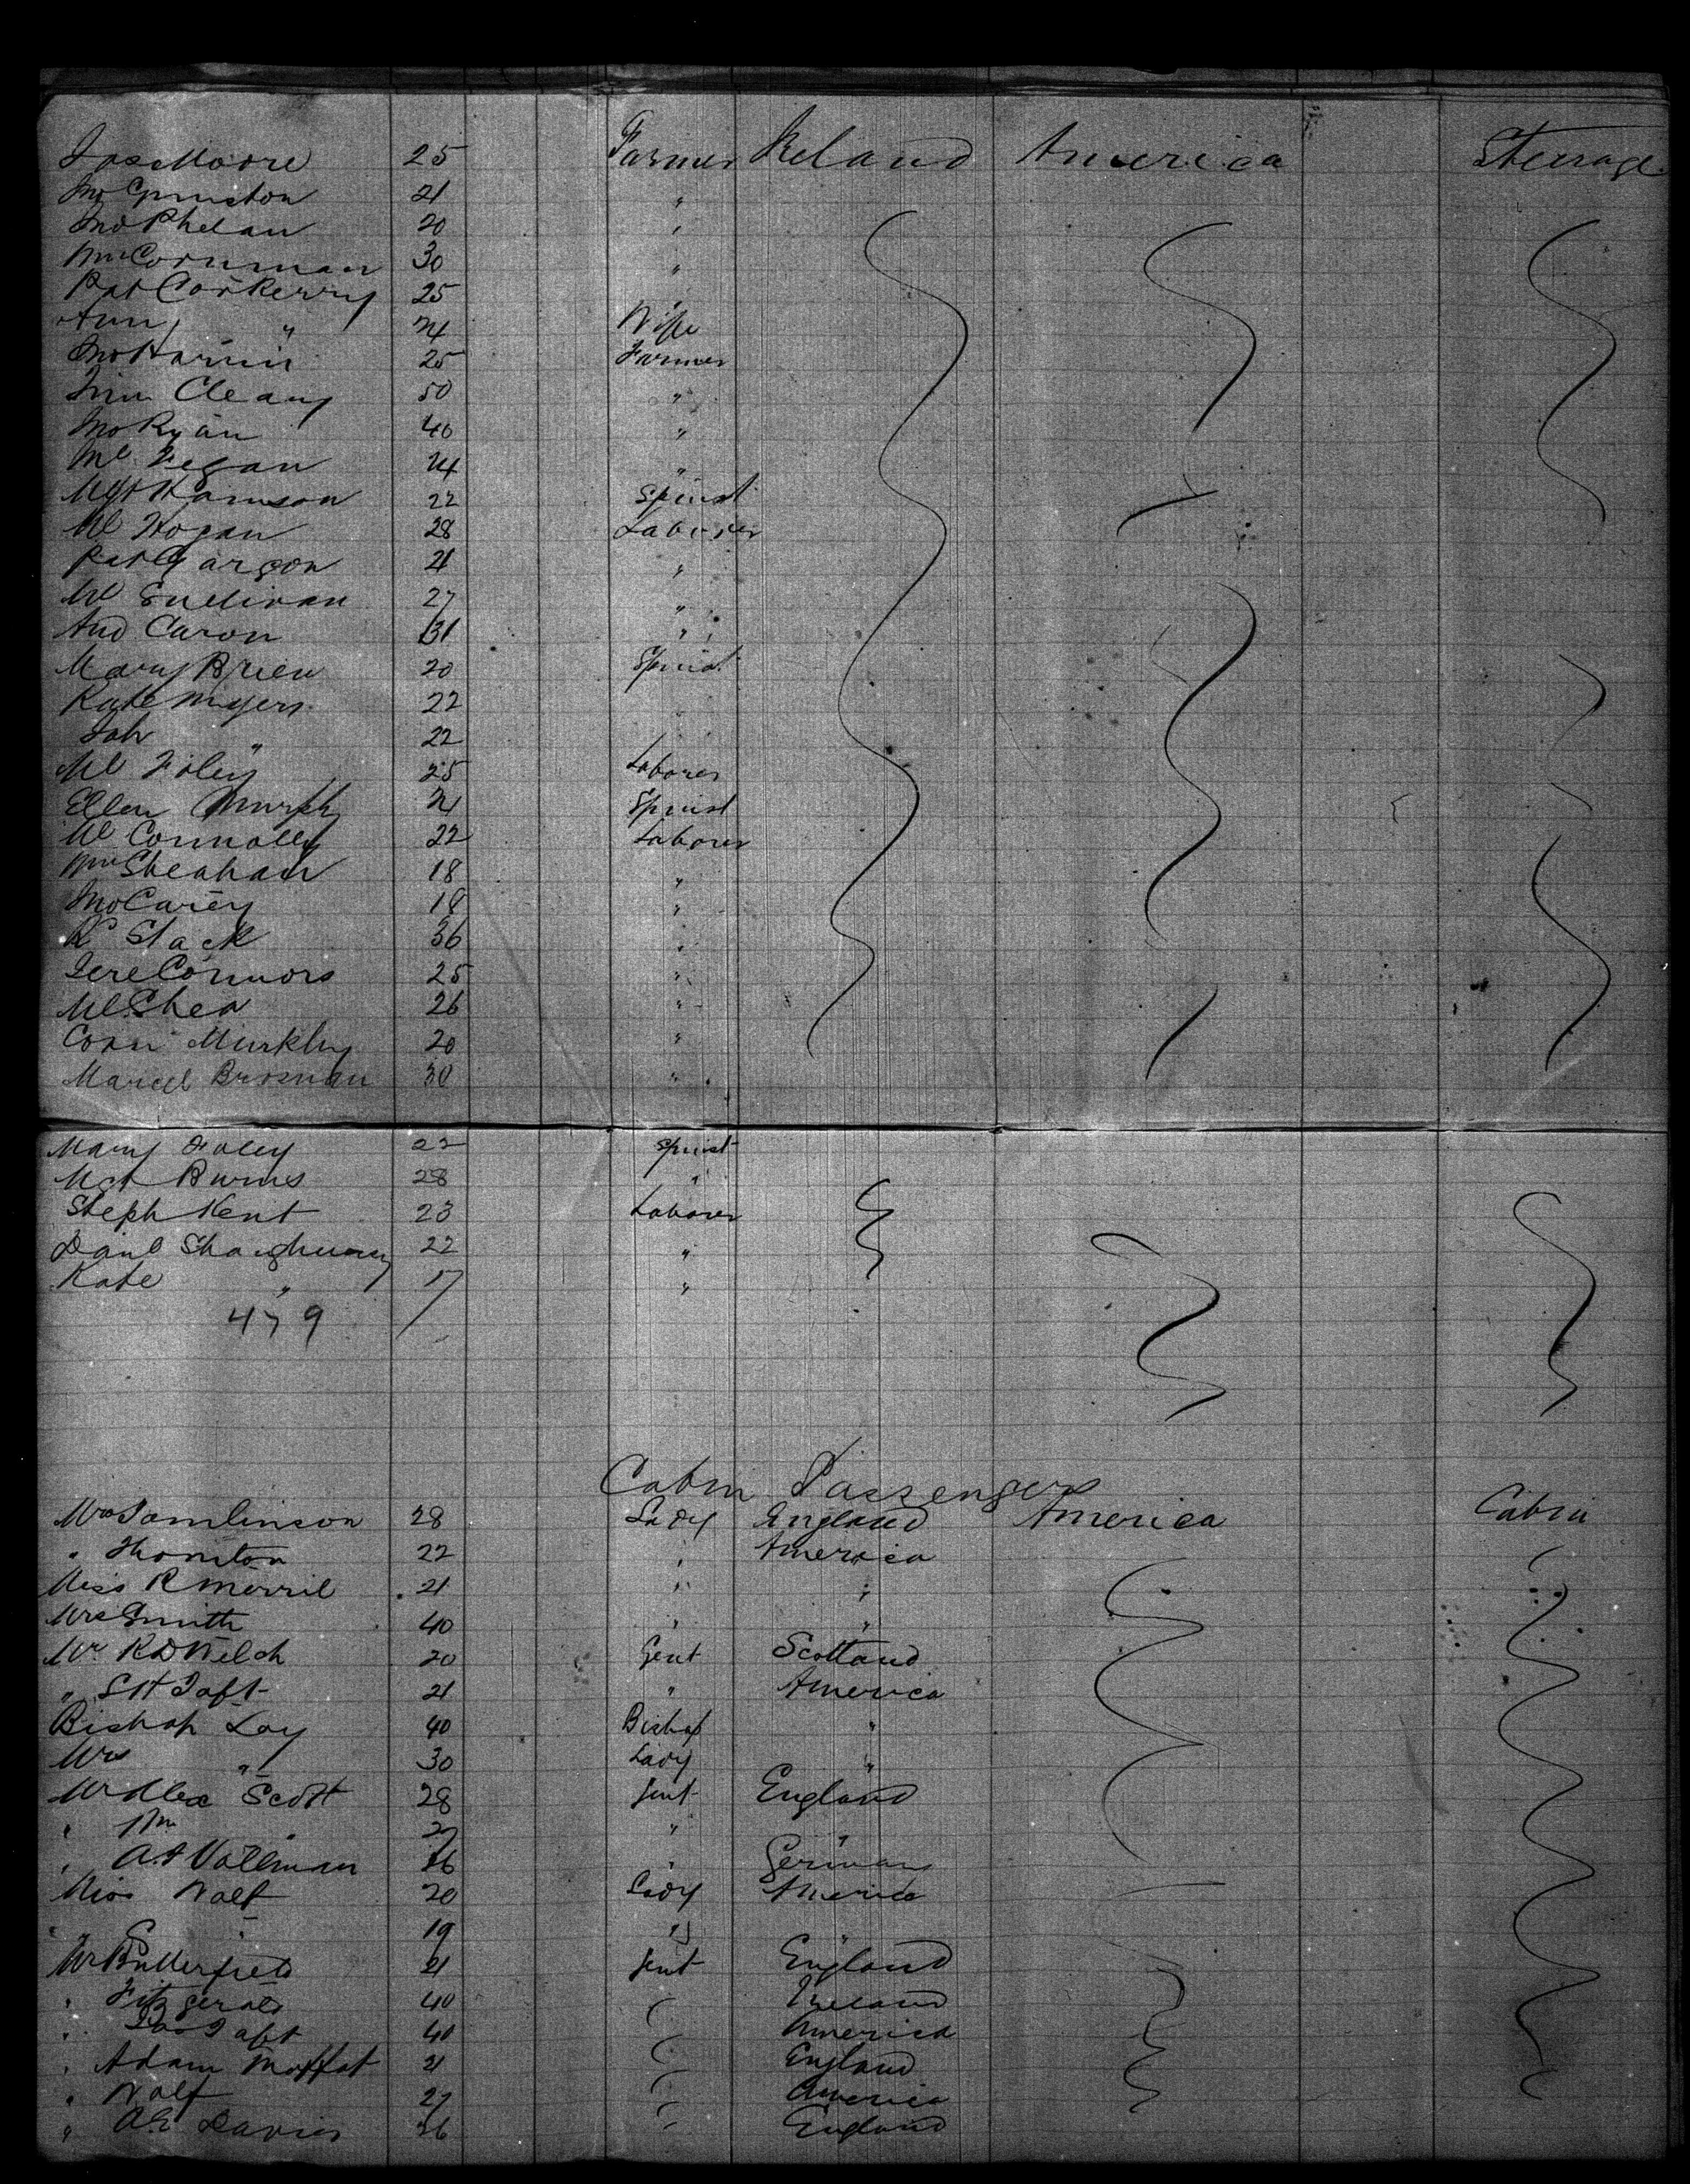 Jas Moore 25 Farmer Ireland America Steerage
Jno 21 "
Jno Phelan 20 "
Wm Cornman 30 "
Pat Corkerry 25 "
Ann " 24 Wife
Jno 25 Farmer
Cleary 50 "
Jno Ryan 40 "
Ml Fegan 24 "
Mgt 22 Spinst
Ml Hogan 28 Laborer
Pat Gargon 21 "
Ml Sullivan 27 "
And Caron 31 "
Mary Brien 20 Spinst
Kate Myers 22
Joh " 22
Ml Foley 25 Laborer
Ellen Murphy 21 Spinst
Ml Connolly 22 Laborer
Wm Sheahan 18 "
Jno Carey 18 "
Rd Stack 36 "
Jere Connors 25 "
Ml Shea 26 "
Corn 20 "
Brosnan 30 "
Mary Foley 22 Spinst
Mgt Burns 28 "
Steph Kent 23 Laborer
Danl 22 "
Kate " 17 "
479
Cabin Passengers
Mrs Tomlinson 28 Lady England America Cabin
" Thornton 22 " America
Miss R Morril 21 " "
Mrs Smith 40 " "
Mr R D Welch 20 Gent Scotland
" S H Taft 21 " America
Bishop Lay 40 Bishop "
Mrs " 30 Lady "
Mr Alex Scott 28 Gent England
" Wm " 27 " "
" Vollman 26 " Germany
Miss Wolf 20 Lady America
" " 19 " "
Mr Butterfield 21 Gent England
" Fitzgerald 40 Ireland
" Taft 40 America
" Adam Moffat 21 England
" Wolf 27 America
" A E Davies 26 England